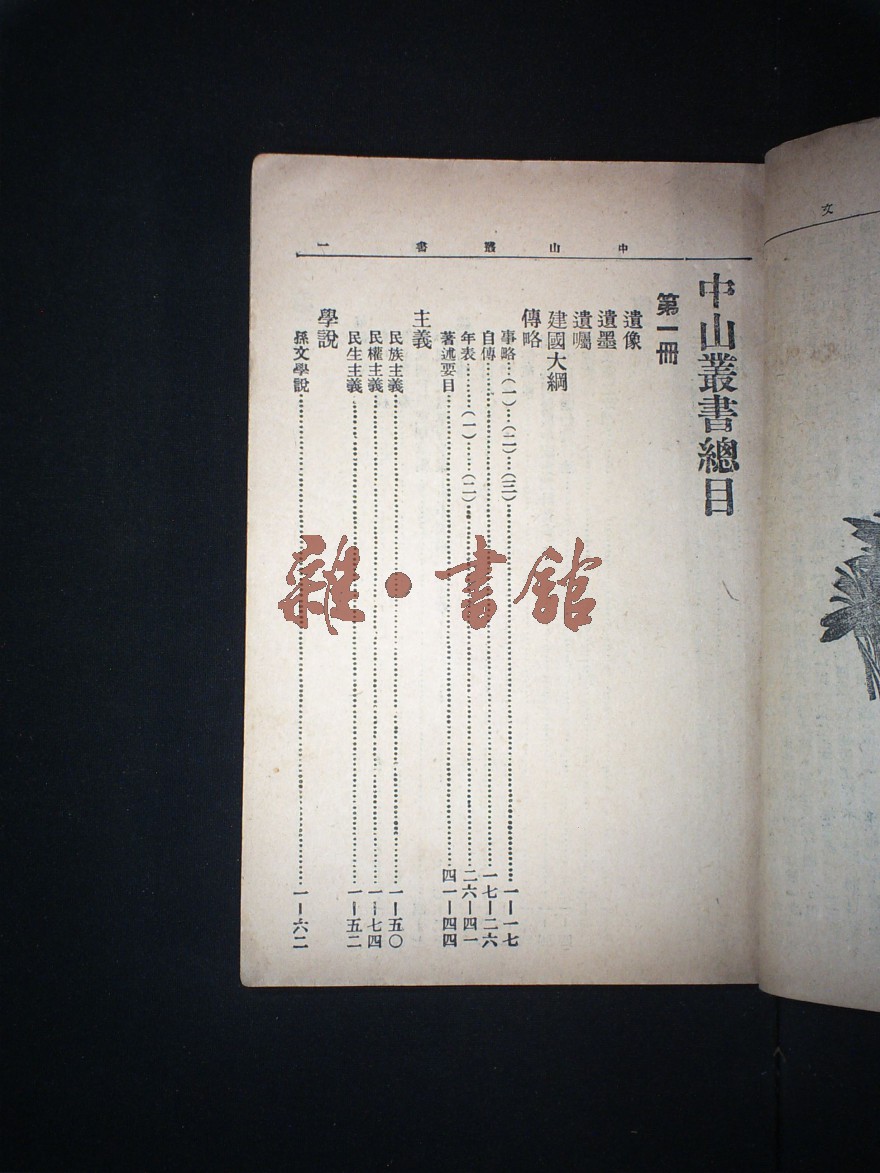 中山叢書 一
中山叢書總目
第一冊
遺像
遺墨
遺囑
建國大綱
傳略
事略…(一)…(二)…(三)……一—一七
自傳……一七—二六
年表……(一)……(二)……二六—四一
著述要目……四一—四四
主義
民族主義……一—五〇
民權主義……一—七四
民生主義……一—五二
學說
孫文學說……一—六二
文
雜·書館